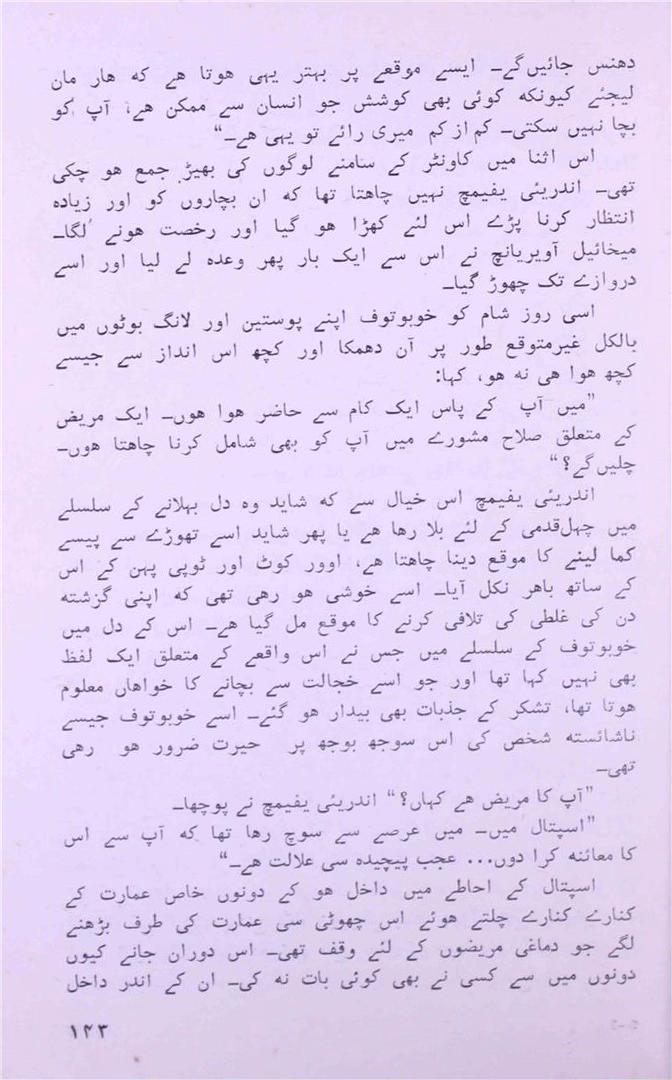 دھنس جائیں گے۔ ایسے موقعے پر بہتر یہی ھوتا ھے کہ ھار مان
لیجئے کیونکہ کوئی بھی کوشش جو انسان سے ممکن ھے، آپ کو
بچا نہیں سکتی۔ کم از کم میری رائے تو یہی ھے۔“
اس اثنا میں کاونٹر کے سامنے لوگوں کی بھیڑ جمع ھو چکی
تھی۔ اندریئی یفیمچ نہیں چاھتا تھا کہ ان بچاروں کو اور زیادہ
انتظار کرنا پڑے اس لئے کھڑا ھو گیا اور رخصت ھونے لگا۔
میخائیل آویریانچ نے اس سے ایک بار پھر وعدہ لے لیا اور اسے
دروازے تک چھوڑ گیا۔
اسی روز شام کو خوبوتوف اپنے پوستین اور لانگ بوٹوں میں
بالکل غیرمتوقع طور پر آن دھمکا اور کچھ اس انداز سے جیسے
کچھ ھوا ھی نہ ھو، کہا:
”میں آپ کے پاس ایک کام سے حاضر ھوا ھوں۔ ایک مریض
کے متعلق صلاح مشورے میں آپ کو بھی شامل کرنا چاھتا ھوں۔
چلیں گے؟“
اندریئی یفیمچ اس خیال سے کہ شاید وہ دل بہلانے کے سلسلے
میں چہل‌قدمی کے لئے بلا رھا ھے یا پھر شاید اسے تھوڑے سے پیسے
کما لینے کا موقع دینا چاھتا ھے، اوور کوٹ اور ٹوپی پہن کے اس
کے ساتھ باھر نکل آیا۔ اسے خوشی ھو رھی تھی کہ اپنی گزشتہ
دن کی غلطی کی تلافی کرنے کا موقع مل گیا ھے۔ اس کے دل میں
خوبوتوف کے سلسلے میں جس نے اس واقعے کے متعلق ایک لفظ
بھی نہیں کہا تھا اور جو اسے خجالت سے بچانے کا خواھاں معلوم
ھوتا تھا، تشکر کے جذبات بھی بیدار ھو گئے۔ اسے خوبوتوف جیسے
ناشائستہ شخص کی اس سوجھ بوجھ پر حیرت ضرور ھو رھی
تھی۔
”آپ کا مریض ھے کہاں؟“ اندریئی یفیمچ نے پوچھا۔
”اسپتال میں۔ میں عرصے سے سوچ رھا تھا کہ آپ سے اس
کا معائنہ کرا دوں... عجب پیچیدہ سی علالت ھے۔“
اسپتال کے احاطے میں داخل ھو کے دونوں خاص عمارت کے
کنارے کنارے چلتے ھوئے اس چھوٹی سی عمارت کی طرف بڑھنے
لگے جو دماغی مریضوں کے لئے وقف تھی۔ اس دوران جانے کیوں
دونوں میں سے کسی نے بھی کوئی بات نہ کی۔ ان کے اندر داخل
۱۲۳